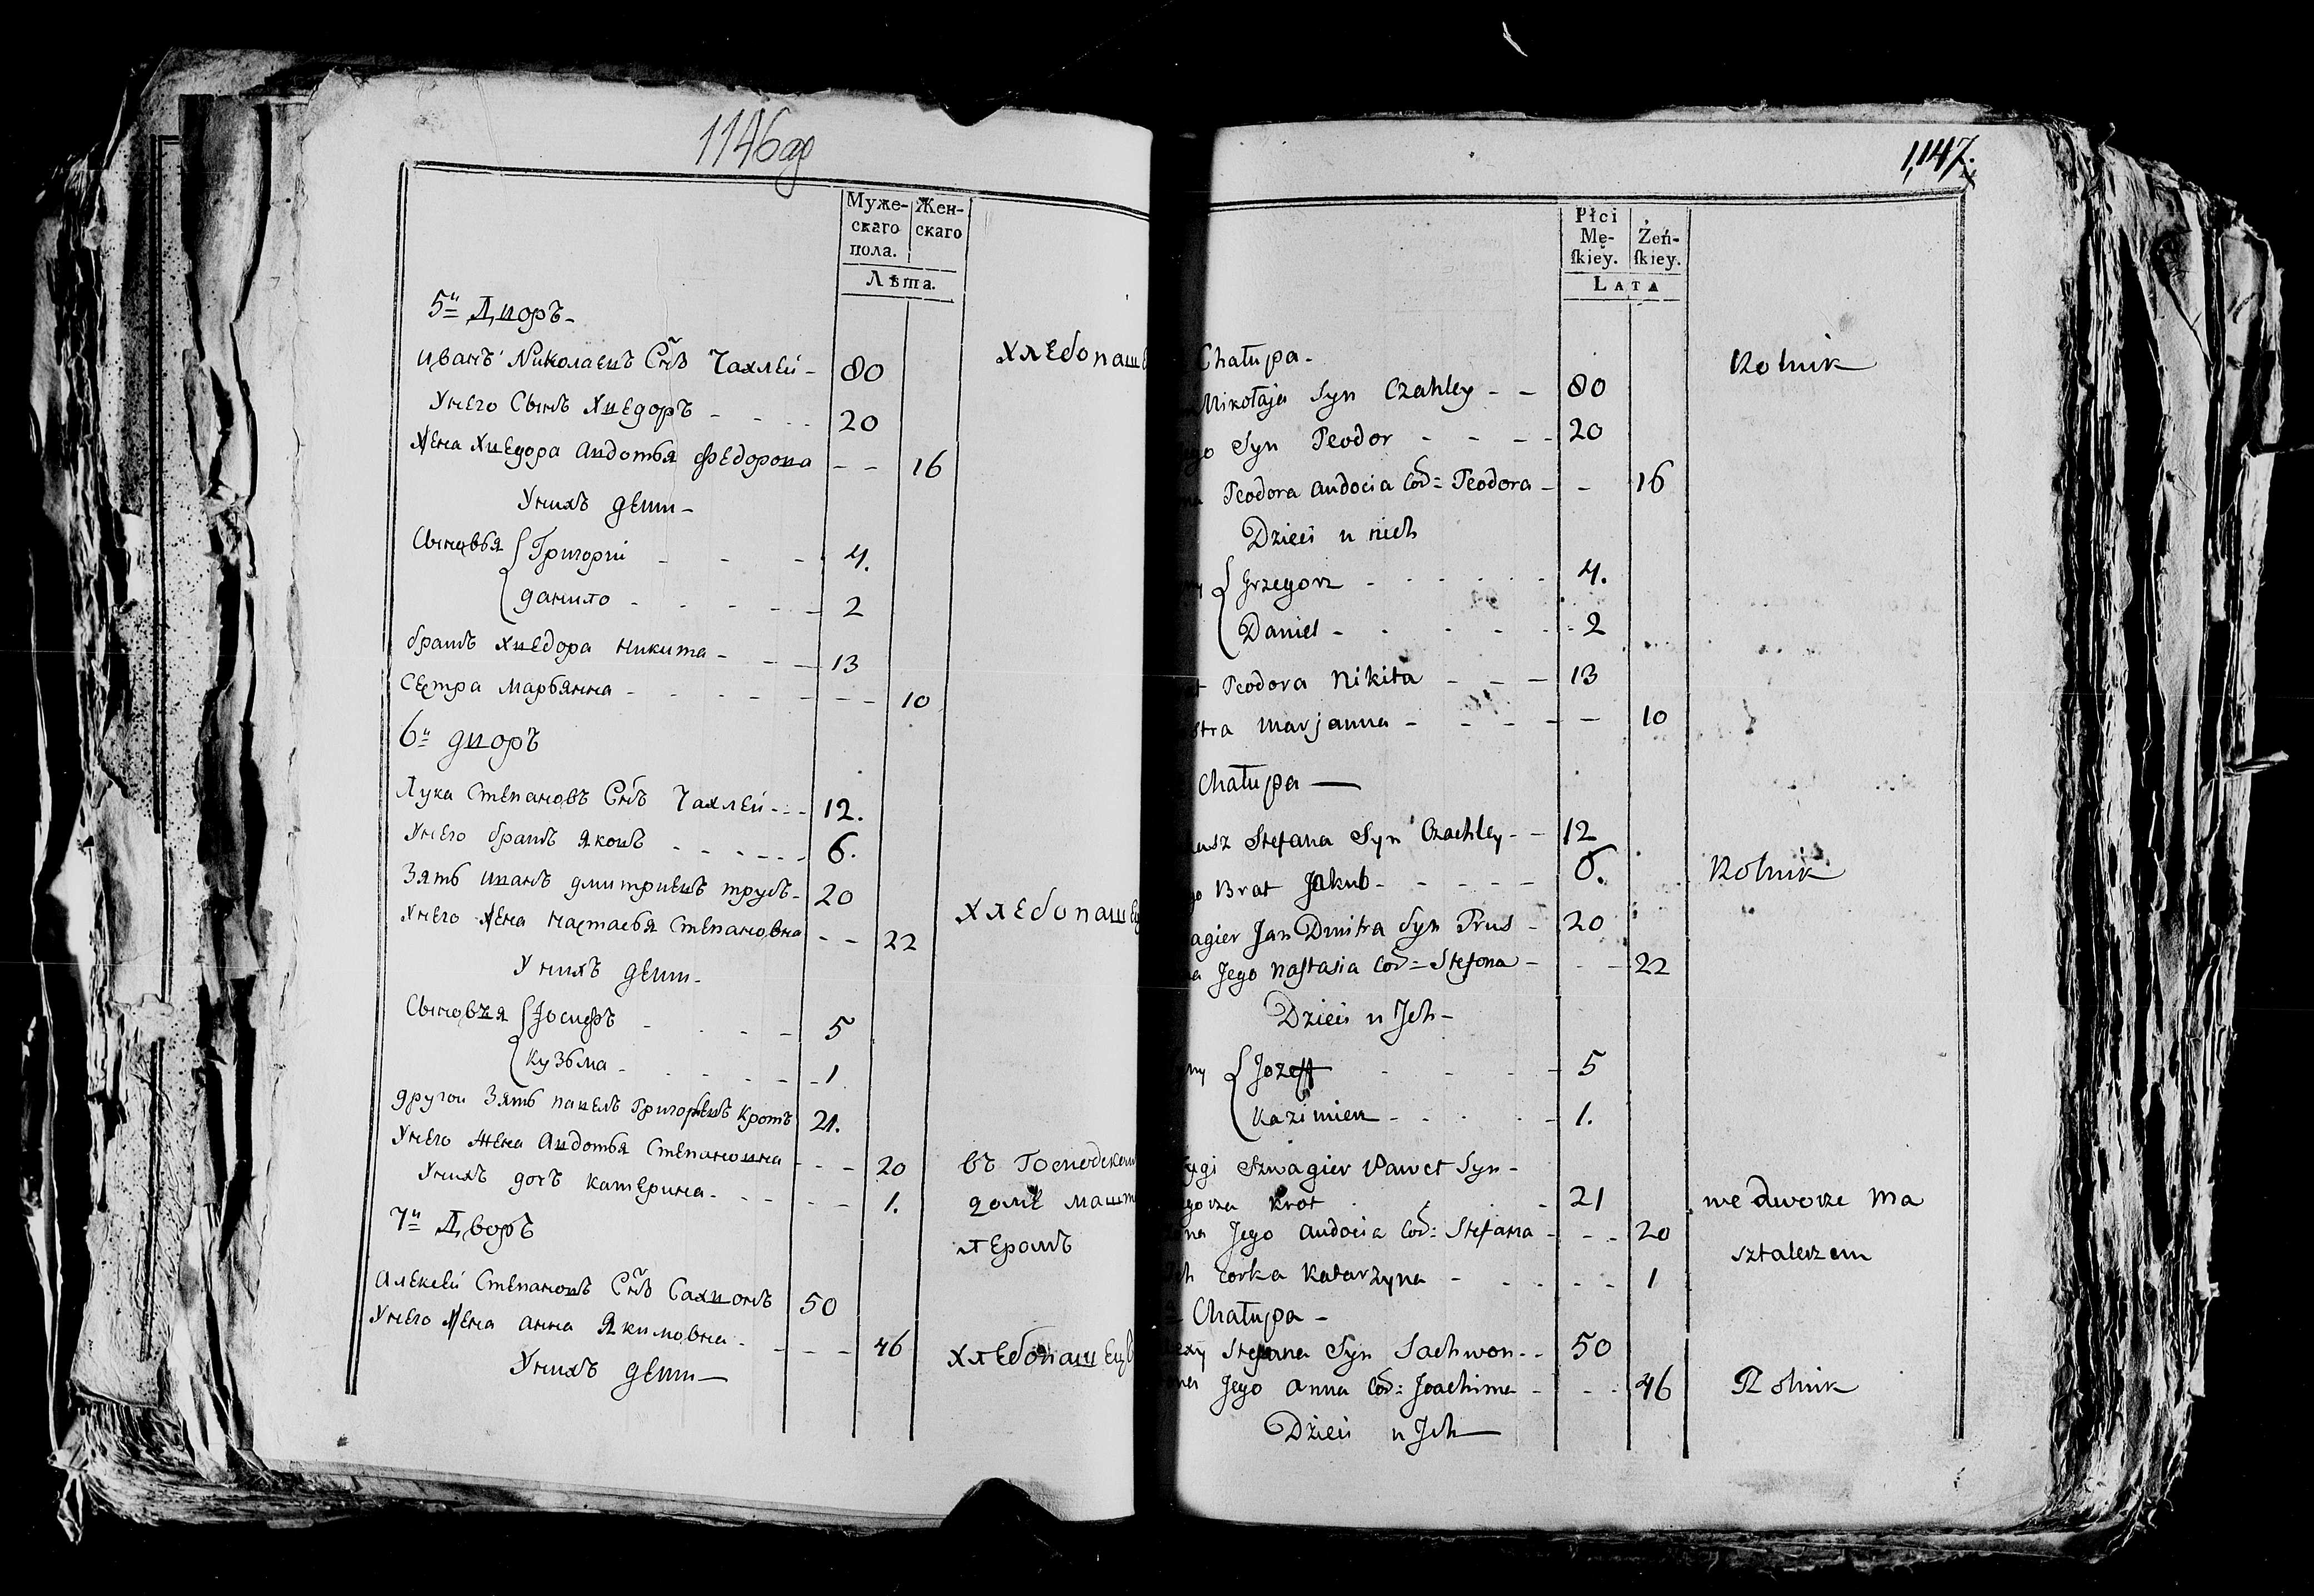 1146об
Муже-
скаго
пола.
Жен-
скаго
Лѣта.
5й Дворъ
Иванъ Николаевъ Снъ Чахлей 80
Хлебопаше
У него Сынъ Хведоръ 20
Жена Хведора Авдотья Федорова 16
У нихъ дети
Сыновья Григорий 4.
Данило 2
братъ Хведора Никита 13
Сестра Марьянна 10
6й дворъ
Лука Степановъ Снъ Чахлей 12.
У него братъ Яковъ 6.
Зять Иванъ Дмитриевъ 20
Хлебопашец
У него Жена Настасья Степановна 22
У нихъ дети
Сыновья Іосифъ 5
Кузьма 1
другои Зять Павелъ Григорьевъ Кротъ 21.
У него Жена Авдотья Степановна 20
въ Господском
У нихъ дочь Катерина 1.
доме машт
лером
7й Дворъ
Алексей Степановъ Снъ Сахвонъ 50
У него Жена Анна Якимовна 46
Хлебопашецъ
У нихъ дети
1,147.
Płci
Mę-
skiey.
Żeń-
skiey.
LATA
Chałupa
Rolnik
Mikołaja Syn Czahley 80
go Syn Teodor 20
na Teodora Audocia Cor: Teodora 16
Dzieci u nich
ny Grzegorz 4.
Daniel 2
t Teodora Nikita 13
stra Marjanna 10
Chałupa
usz Stefana Syn Czachley 12
go Brat Jakub 6.
Rolnik
agier Jan Dmitra Syn Prus 20
na Jego Nastasia Cor: Stefana 22
Dzieci u Jch
ny Jozeff 5
Kazimierz 1.
ugi Szwagier Pawel Syn
gorza Krot 21
we dworze ma
ona Jego Audocia Cor: Stefana 20
sztalerzem
ch Corka Katarzyna 1
Chałupa
exy Stefana Syn Sachwon 50
ona Jego Anna Cor: Joachima 46
Rolnik
Dzieci u Jch